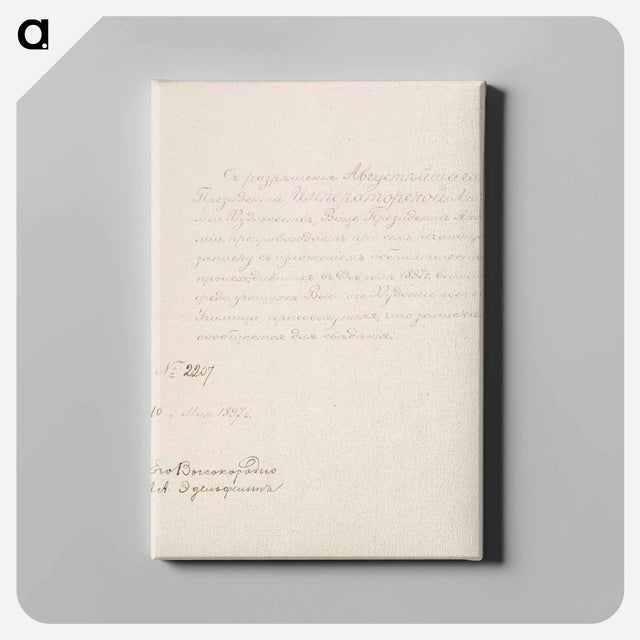 a.
Съ разрѣшенія Августѣйшаго
Президента Императорской Ака
міи Художествъ, Вице-Президентъ Ака
міи препровождаетъ при семъ печатну
записку съ изложеніемъ обстоятельств
происходившихъ въ Февралѣ 1897 г.
среди учащихся Высшаго Художественна
Училища, присовокупляя, что записка
сообщается для свѣдѣнія.
№ 2207
10 Мая 1897 г.
Его Высокородію
А. Эдельфельтъ